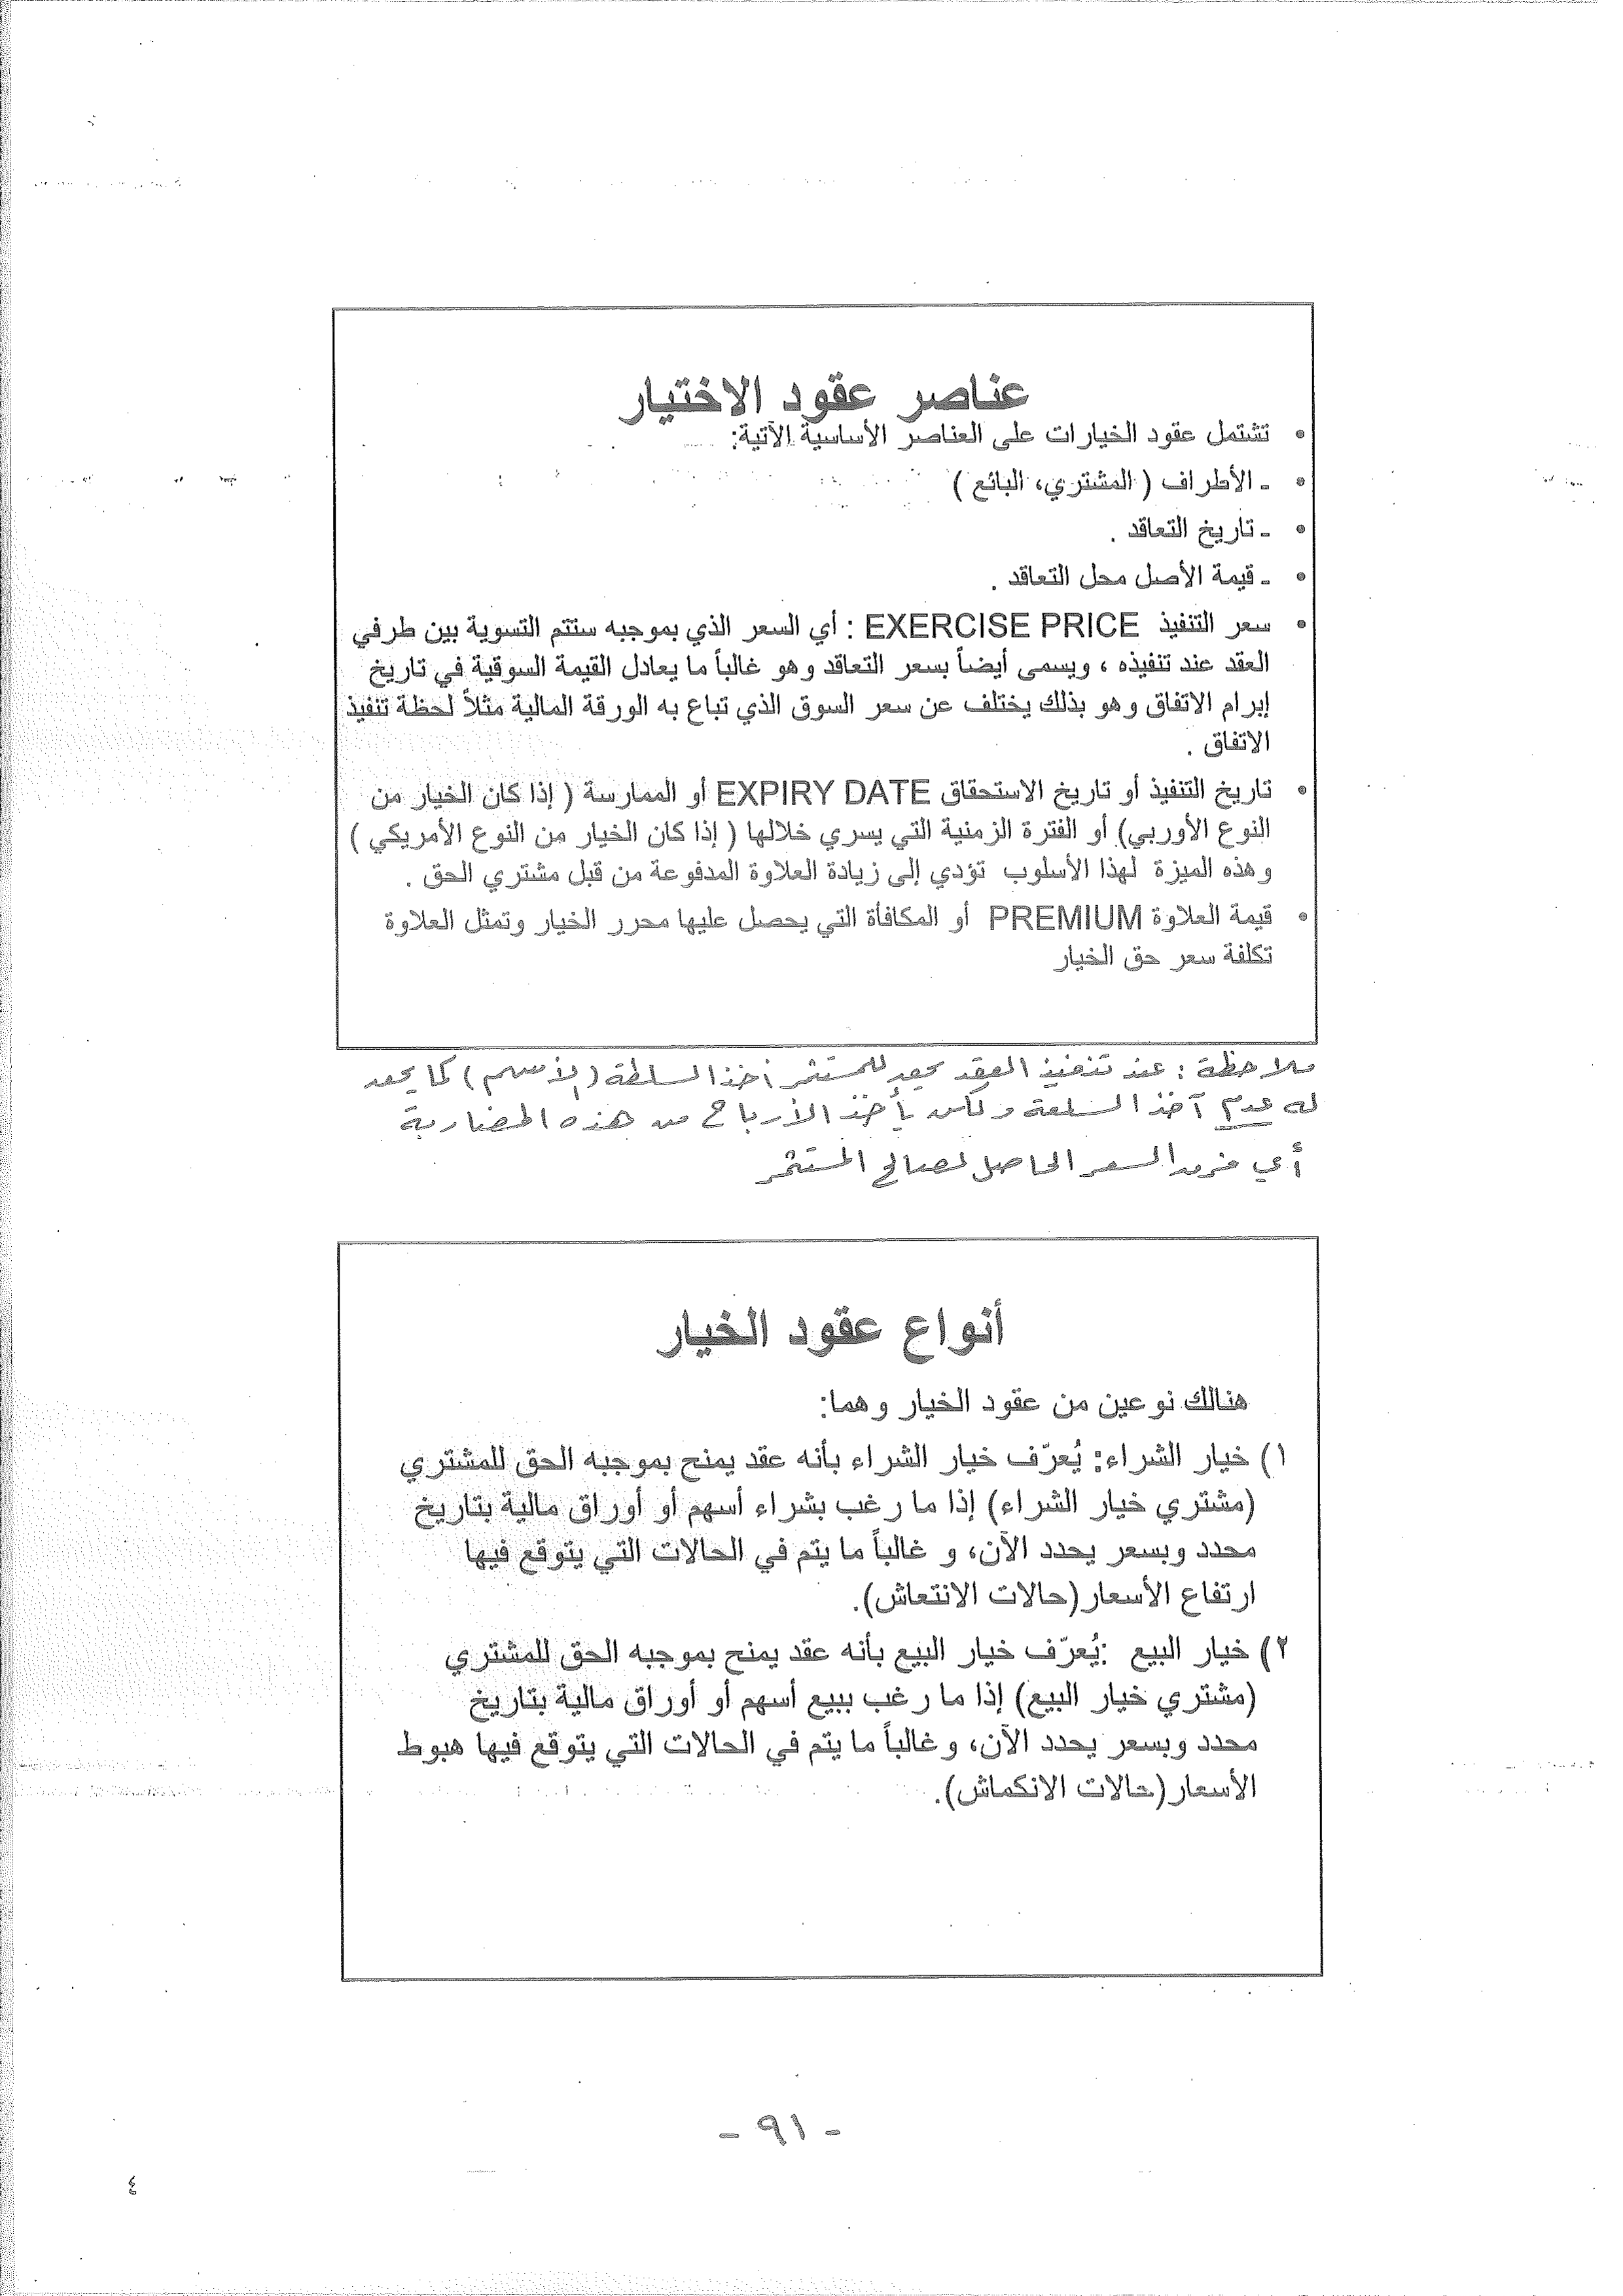 عناصر عقود الاختيار
• تشتمل عقود الخيارات على العناصر الأساسية الآتية:
• - الأطراف ( المشتري، البائع )
• - تاريخ التعاقد .
• - قيمة الأصل محل التعاقد .
• سعر التنفيذ EXERCISE PRICE : أي السعر الذي بموجبه ستتم التسوية بين طرفي
العقد عند تنفيذه ، ويسمى أيضاً بسعر التعاقد وهو غالباً ما يعادل القيمة السوقية في تاريخ
إبرام الاتفاق وهو بذلك يختلف عن سعر السوق الذي تباع به الورقة المالية مثلاً لحظة تنفيذ
الاتفاق .
• تاريخ التنفيذ أو تاريخ الاستحقاق EXPIRY DATE أو الممارسة ( إذا كان الخيار من
النوع الأوربي) أو الفترة الزمنية التي يسري خلالها ( إذا كان الخيار من النوع الأمريكي )
وهذه الميزة لهذا الأسلوب تؤدي إلى زيادة العلاوة المدفوعة من قبل مشتري الحق .
• قيمة العلاوة PREMIUM أو المكافأة التي يحصل عليها محرر الخيار وتمثل العلاوة
تكلفة سعر حق الخيار
ملاحظة : عند تنفيذ العقد للمستثمر أخذ السلطة (الأسهم) كما
له عدم آخذ السلعة ولكن يأخذ الأرباح من هذه المضاربة
أي السعر الحاصل لصالح المستثمر
أنواع عقود الخيار
هنالك نوعين من عقود الخيار وهما:
١) خيار الشراء: يُعرّف خيار الشراء بأنه عقد يمنح بموجبه الحق للمشتري
(مشتري خيار الشراء) إذا ما رغب بشراء أسهم أو أوراق مالية بتاريخ
محدد وبسعر يحدد الآن، و غالباً ما يتم في الحالات التي يتوقع فيها
ارتفاع الأسعار (حالات الانتعاش).
٢) خيار البيع :يُعرّف خيار البيع بأنه عقد يمنح بموجبه الحق للمشتري
(مشتري خيار البيع) إذا ما رغب ببيع أسهم أو أوراق مالية بتاريخ
محدد وبسعر يحدد الآن، وغالباً ما يتم في الحالات التي يتوقع فيها هبوط
الأسعار (حالات الانكماش).
- ٩١ -
٤